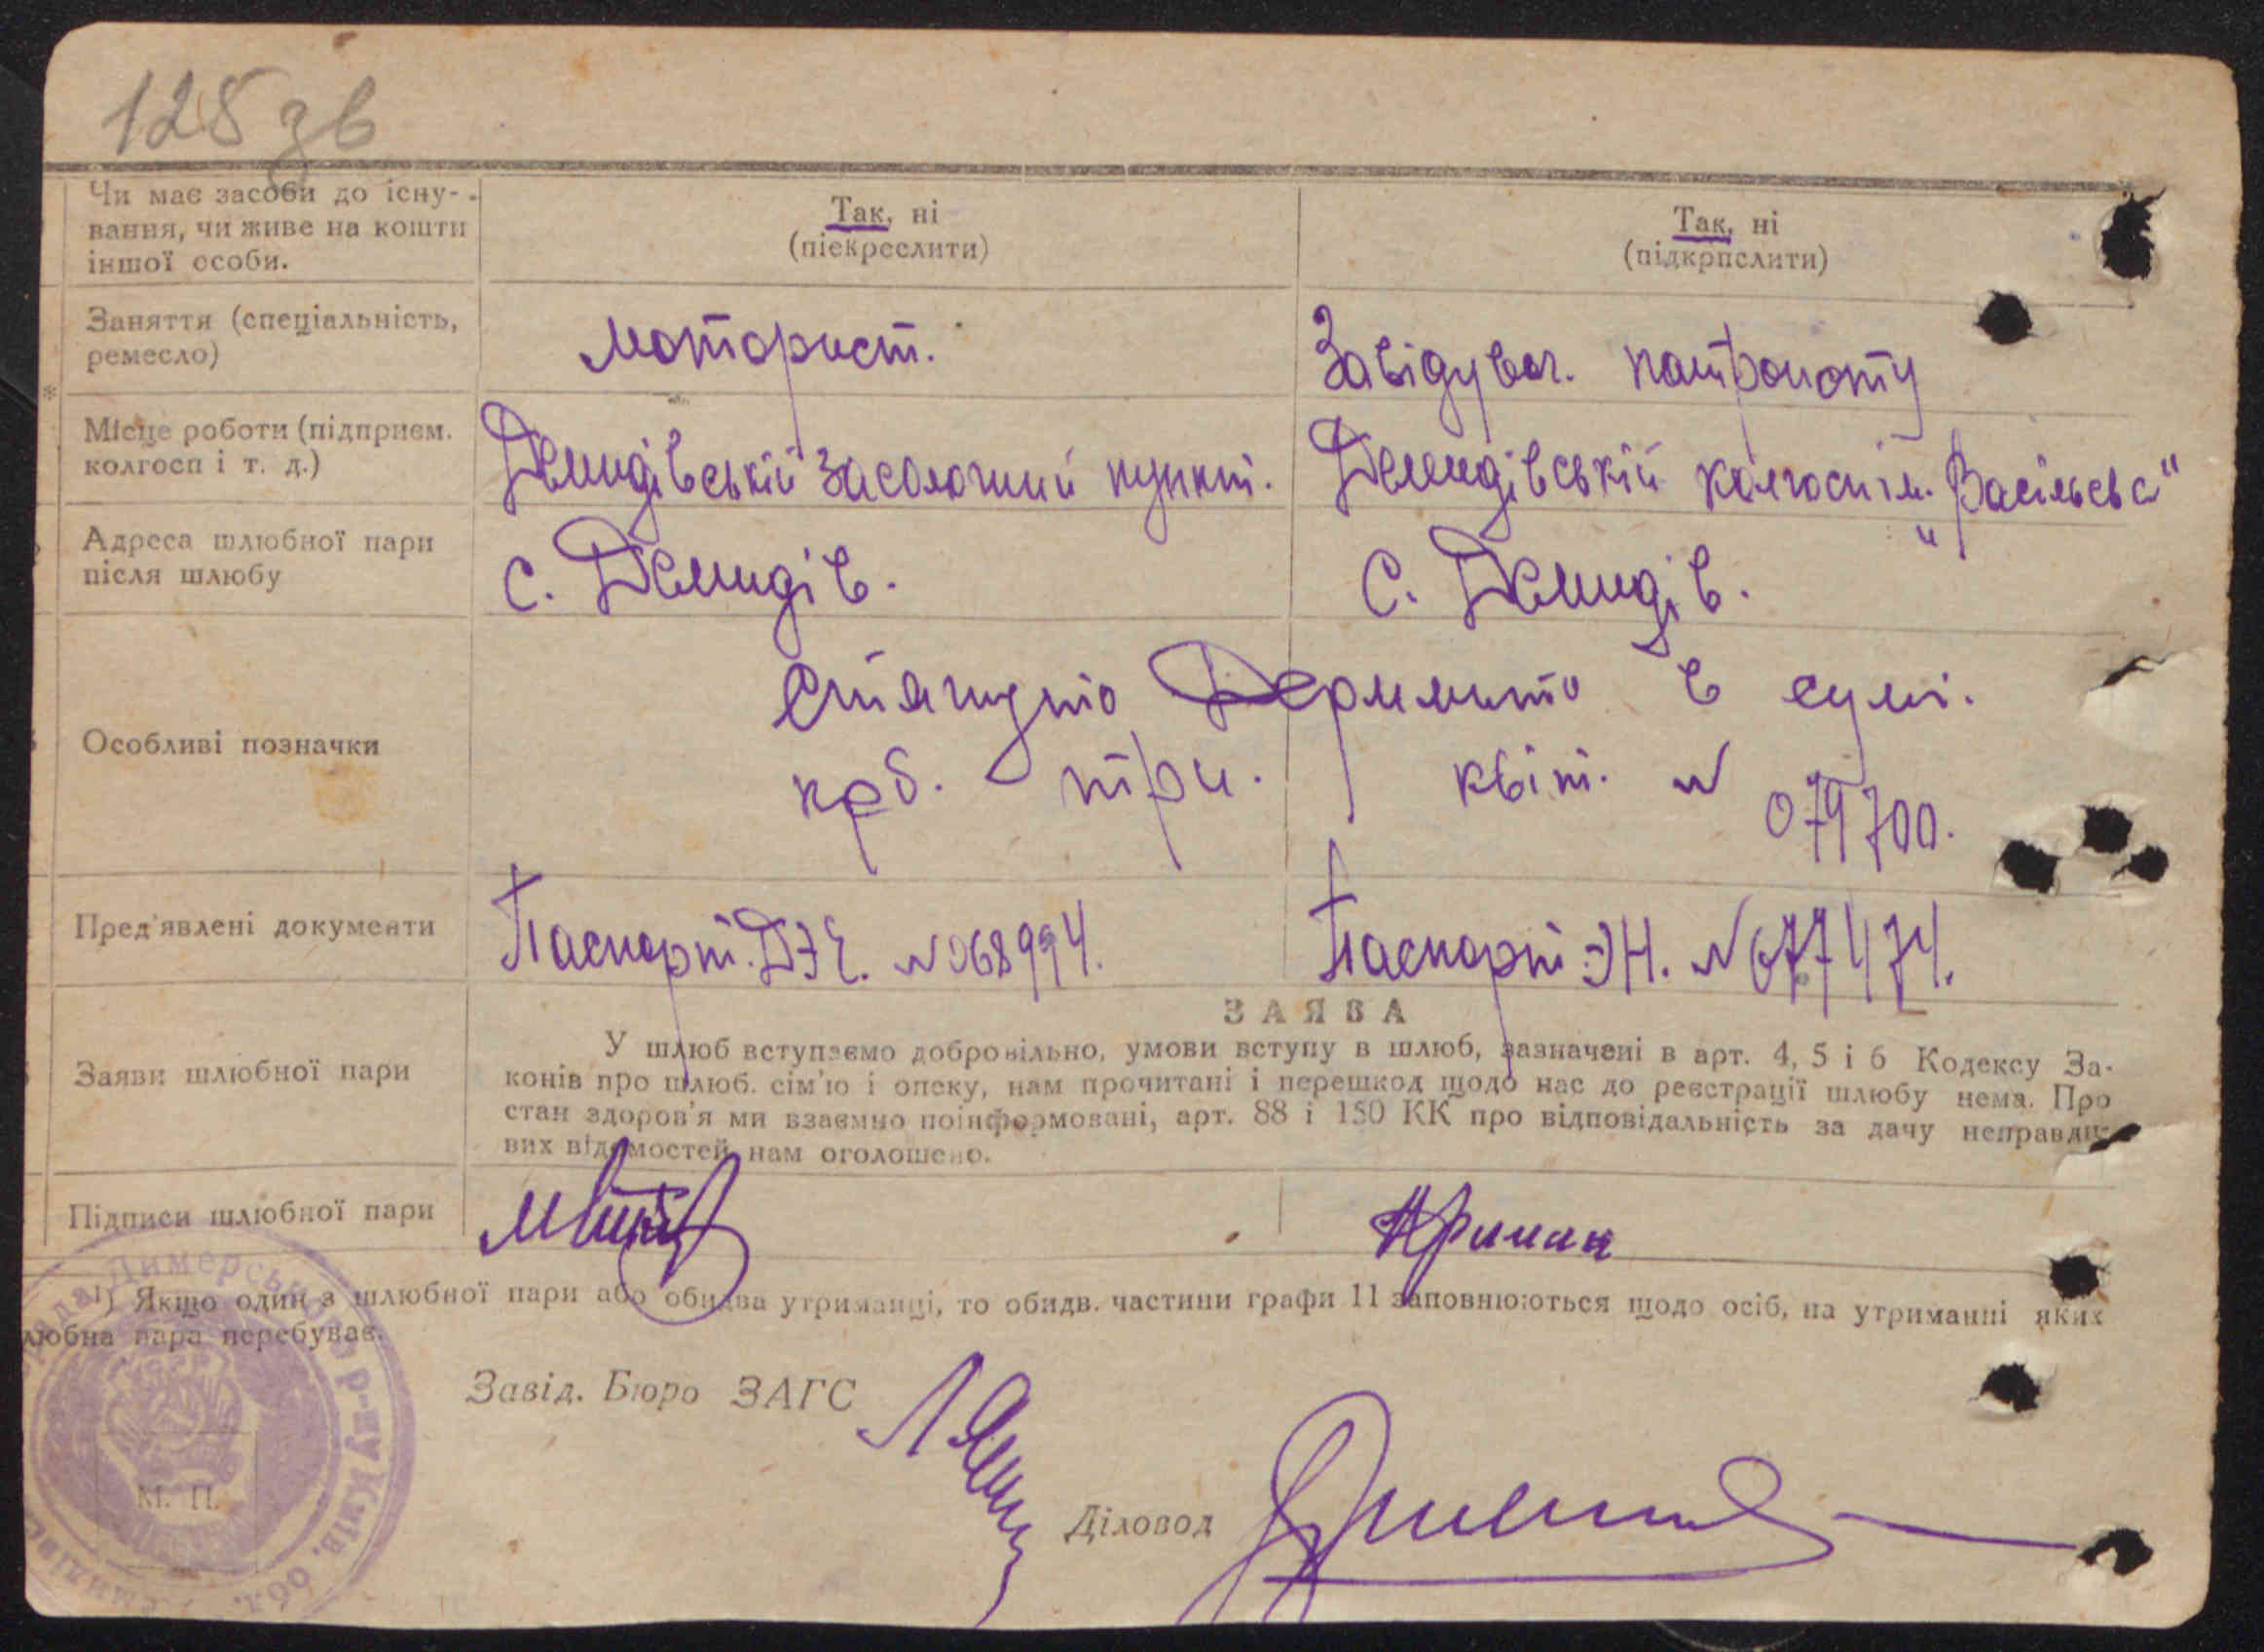 128 зв
Чи має засоби до існу-
вання, чи живе на кошти
іншої особи.
Так, ні
(піекреслити)
Так, ні
(підкрпслити)
Заняття (спеціальність,
ремесло)
моторист.
Завідувач. патронату
Місце роботи (підприєм.
колгосп і т. д.)
Демидівський засолочний пункт.
Демидівській колгосп ім. "Васільєва"
Адреса шлюбної пари
після шлюбу
с. Демидів.
с. Демидів.
Особливі позначки
Стягнуто Держмито в сумі.
крб. три. квіт. N 079700.
Пред'явлені документи
Паспорт. N 068994.
Паспорт ЭН. N 677474.
ЗАЯВА
Заяви шлюбної пари
У шлюб вступаємо добровільно, умови вступу в шлюб, зазначені в арт. 4, 5 і 6 Кодексу За-
конів про шлюб. сім'ю і опеку, нам прочитані і перешкод щодо нас до реєстрації шлюбу нема. Про
стан здоров'я ми взаємно поінформовані, арт. 88 і 150 КК про відповідальність за дачу неправди-
вих відомостей нам оголошено.
Підписи шлюбної пари
¹) Якщо один з шлюбної пари або обидва утриманці, то обидв. частини графи 11 заповнюються щодо осіб, на утриманні яких
любна пара перебуває.
Завід. Бюро ЗАГС
Діловод
М. П.
Димерського р-ну Київ. обл.